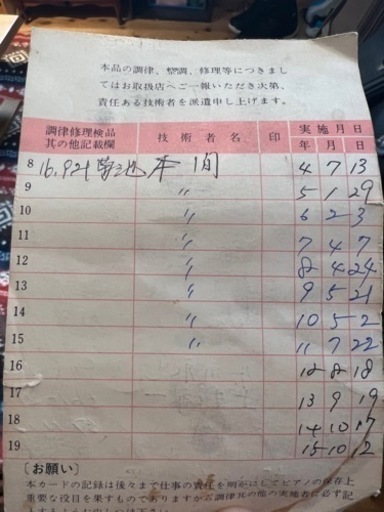 本品の調律、整調、修理等につきまし
てはお取扱店へご一報いただき次第、
責任ある技術者を派遣申し上げます。
調律修理検品 技術者名 印 実施月日
其の他記載欄 年 月 日
8 16.9.21 本間 4 7 13
9 〃 5 1 29
10 〃 6 2 3
11 〃 7 4 7
12 〃 8 4 24
13 〃 9 5 21
14 〃 10 5 2
15 〃 11 7 22
16 12 8 18
17 13 9 19
18 14 10 17
19 15 10 12
〔お願い〕
本カードの記録は後々まで仕事の責任を明かにしてピアノの保存上
重要な役目を果すものでありますから調律其の他の実施者に必ず記